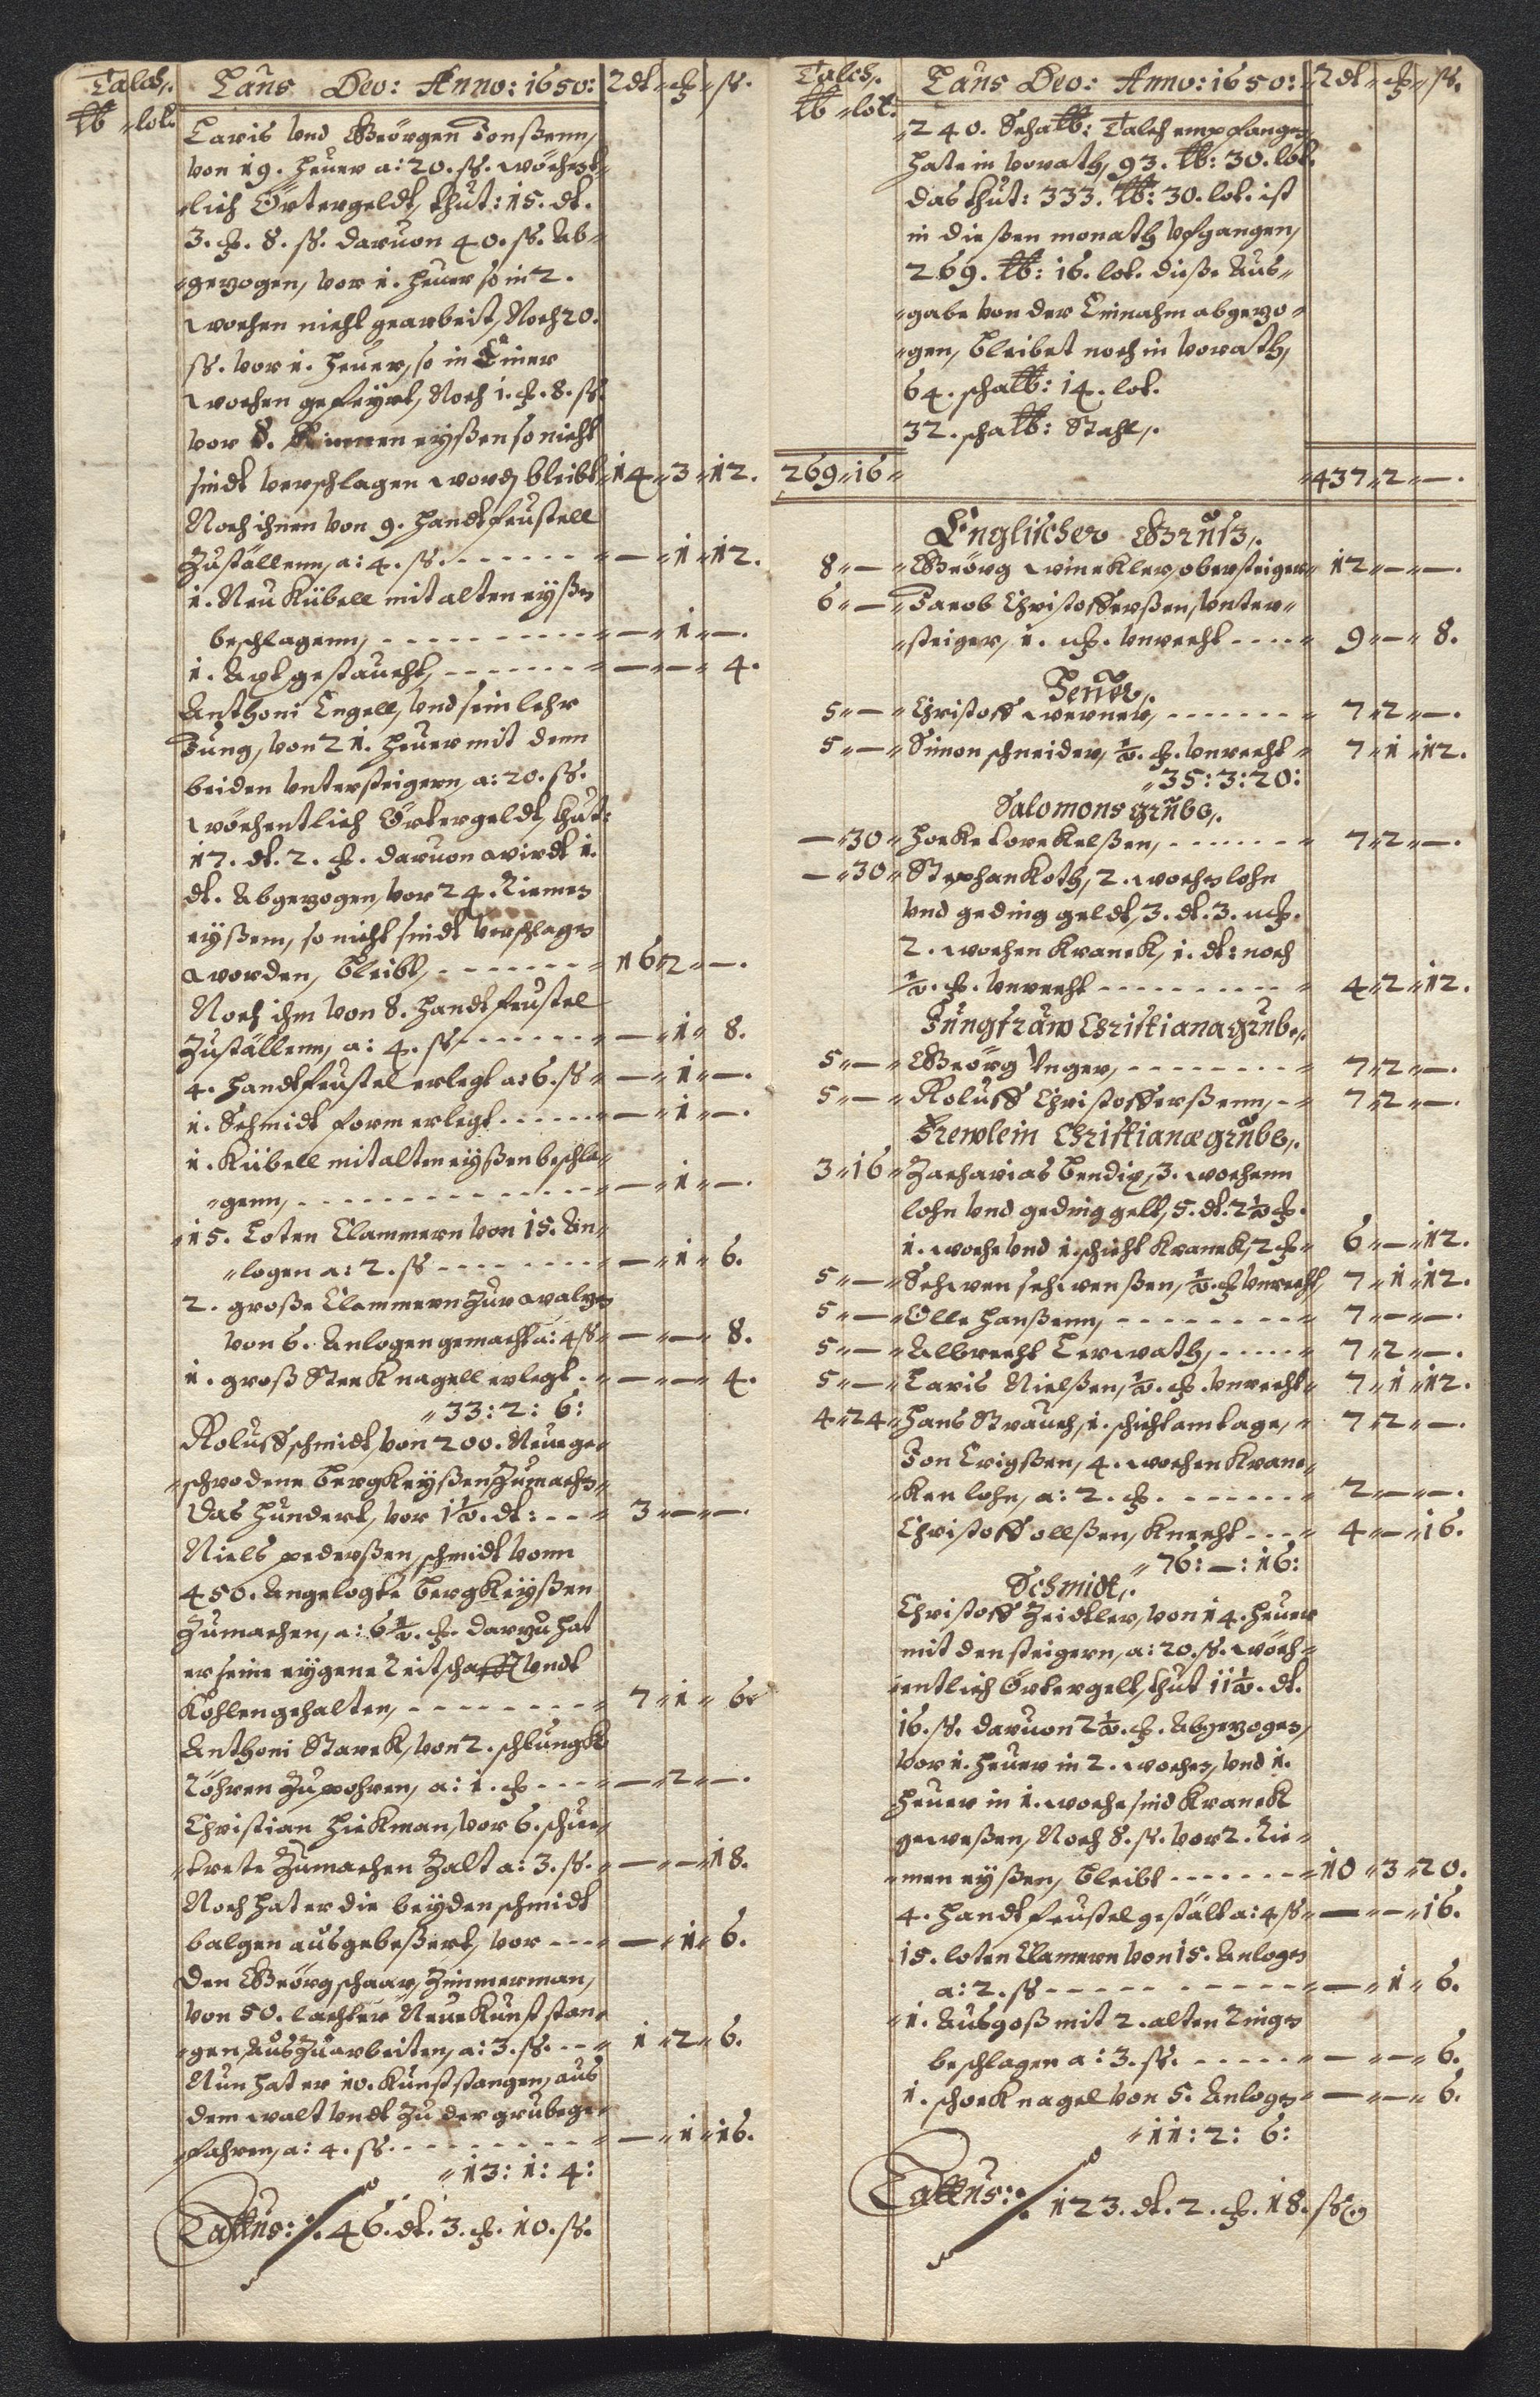 Talch,. Laus Deo: Anno: 1650: Rdt " ß " ss.
lb " lot.
Laris vnd Geörgen Jonßenn,
von 19. heuer a: 20. ss. wöchent"
"lich Örtergeldt, thut: 15. dt.
3. ß. 8. ss. daruon 40. ss. Ab"
"gezogen, vor 1. heuer so in 2.
wochen nicht gearbeit, Noch 20.
ss. vor 1. heuer, so in Einer
wochen gefeyrt, Noch 1. ß. 8. ss.
vor 8. Riemen eyßen so nicht
sindt verschlagen word, bleibt " 14 " 3 " 12.
Noch ihnen von 9. handtfeustell
Zuställenn, a: 4. ss. - - - " — " 1 " 12.
1. Neu Kübell mit alten eyßen
beschlagenn, - - - " — " 1 " —.
1. Axt gestaucht, - - - " — " — " 4.
Anthoni Engell, vnd sein lehr
Jung, von 21. heuer mit denn
beiden vntersteigern, a: 20. ss.
wöchentlich Örtergeldt, thut:
17. dt. 2. ß. daruon wirdt 1.
dt. Abgezogen, vor 24. Riemen
eyßenn, so nicht sindt verschlagen
worden, bleibt, - - - " 16 " 2 " —.
Noch ihm von 8. handtfeustel
Zuställenn, a: 4. ss - - - " — " 1 " 8.
4. handtfeustel erlegt a: 6. ss " — " 1 " —.
1. Schmidt form erlegt - - - " — " 1 " —.
1. Kübell mit alten eyßen beschla"
"genn, - - - " — " 1 " —.
"15. Loten Clammern von 15. An"
"logen a: 2. ss - - - " — " 1 " 6.
2. große Clammern Zur walzen
von 6. Anlogen gemacht a: 4 ss " — " — " 8.
1. groß Steck nagell erlegt - " — " — " 4.
" 33: 2: 6:
Roluff schmidt, von 200. Neue ge"
"schrodene bergkeyßen Zumachen"
Das hundert, vor 1½. dt: - - " 3 " — " —.
Niels pederßen, schmidt vonn
450. Angelogte bergkeyßen
Zumachen, a: 6½. ß. darzu hat
er seine eygene Reitschafft vndt
Kohlen gehalten, - - - " 7 " 1 " 6
Anthoni Starck, von 2. schlungk
Röhren Zu pohren, a: 1. ß - - - " — " 2 " —.
Christian hickman, vor 6.
Zumachen Zalt a: 3. ss. " — " — " 18.
Noch hat er die beyden schmidt
balgen ausgebeßert, vor - - - " — " 1 " 6.
Den Geörg schaar, Zimmerman,
von 50. lachter Neue Kunst stan"
"gen, Aus Zuarbeiten, a: 3. ss. - - " 1 " 2 " 6.
Nun hat er 10. Kunst stangen, aus
dem walt vndt Zu der grube ge"
"fahren, a: 4. ss. - - - " — " 1 " 16.
" 13: 1: 4:
Lattus: /. 46. dt. 3. ß. 10. ss.
Talch,. Laus Deo: Anno: 1650: " Rdt " ß " ss.
lb " lot.
"240. Scha lb: Talch empfangen,
hate in vorath, 93. lb: 30. lot.
das thut: 333. lb: 30. lot. ist
in dießen monath vfgangen,
269. lb: 16. lot. diße Aus"
"gabe von der Einnahm abgezo"
"gen, bleibet noch in vorath,
64. scha lb: 14. lot.
32. scha lb: Stahl,.
269 " 16 " " 437 " 2 " —.
Englischer Gruß,.
8 " — " Geörg winckler, obersteiger " 12 " — " —.
6 " — " Jacob Christofferßen, vnter"
"steiger, 1. ß. vnrecht - - - " 9 " — " 8.
Heuer,.
5 " — " Christoff werner, - - - " 7 " 2 " —.
5 " — " Simon schneider, ½. ß. vnrecht " 7 " 1 " 12.
" 35: 3: 20:
Salomons grube,.
— " 30 " Hocke torckelßen, - - - " 7 " 2 " —.
— " 30 " Stephan Koth, 2. wochen lohn
vnd geding geldt, 3. dt. 3. ß.
2. wochen Kranck, 1. dt: noch
½. ß. vnrecht - - - " 4 " 2 " 12.
Jungfraw Christiana grube,.
5 " — " Geörg Vnger, - - - " 7 " 2 " —.
5 " — " Roluff Christofferßenn, - " 7 " 2 " —.
Frewlein Christianæ grube,.
3 " 16 " Zacharias bendix, 3. wochenn
lohn vnd geding gelt, 5. dt. 2½ ß.
1. woche vnd 1. schicht Kranck, 2 ß " 6 " — " 12.
5 " — " Schwen schwenßen, ½. ß vnrecht, 7 " 1 " 12.
5 " — " Olle Hanßenn, - - - " 7 " — " —.
5 " — " Albrecht Lerwath, - - - " 7 " 2 " —.
5 " — " Laris Nielßen, ½. ß. vnrecht " 7 " 1 " 12.
4 " 24 " Hans Strauch, 1. schicht am tage, " 7 " 2 " —.
Jon Erigßen, 4. wochen Kranc"
"ken lohn, a: 2. ß. - - - " 2 " — " —.
Christoff ollßen, Knecht - - - " 4 " — " 16.
" 76: —: 16:
Schmidt,.
Christoff Zeidtler, von 14. heuer
mit den steigern, a: 20. ss. wöch"
"entlich Örtergelt, thut 11½. dt.
16. ss. daruon 2½. ß. Abgezogen,
vor 1. heuer in 2. wochen, vnd 1.
heuer in 1. woche sind Kranck
geweßen, Noch 8. ss. vor 2. Rie"
"men eyßen, bleibt - - - " 10 " 3 " 20.
4. handtfeustel gestält a: 4 ss " — " — " 16.
15. loten Clamern von 15. Anlogen
a: 2. ss - - - " — " 1 " 6.
"1. Ausgoß mit 2. alten Ringen
beschlagen a: 3. ss. - - - " — " — " 6.
1. schock nagel von 5. Anlogen " — " — " 6.
" 11: 2: 6:
Lattus: /. 123. dt. 2. ß. 18. ss